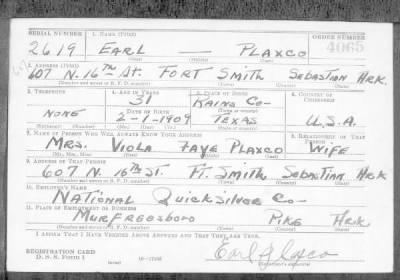 SERIAL NUMBER 1. NAME (Print) ORDER NUMBER
2619 EARL — PLAXCO 4065
(First) (Middle) (Last)
2. ADDRESS (Print)
607 N. 16th St. FORT SMITH SEBASTIAN ARK.
(Number and street or R. F. D. number) (Town) (County) (State)
3. TELEPHONE 4. AGE IN YEARS 5. PLACE OF BIRTH 6. COUNTRY OF CITIZENSHIP
31 RAINS CO—
NONE DATE OF BIRTH
2-11-1909 TEXAS U.S.A.
(Exchange) (Number) (Mo.) (Day) (Yr.) (State or country)
7. NAME OF PERSON WHO WILL ALWAYS KNOW YOUR ADDRESS 8. RELATIONSHIP OF THAT PERSON
MRS. VIOLA FAYE PLAXCO WIFE
(Mr., Mrs., Miss) (First) (Middle) (Last)
9. ADDRESS OF THAT PERSON
607 N. 16th St. FT. SMITH SEBASTIAN ARK
(Number and street or R. F. D. number) (Town) (County) (State)
10. EMPLOYER'S NAME
NATIONAL QUICKSILVER CO—
11. PLACE OF EMPLOYMENT OR BUSINESS
MURFREESBORO PIKE ARK
(Number and street or R. F. D. number) (Town) (County) (State)
I AFFIRM THAT I HAVE VERIFIED ABOVE ANSWERS AND THAT THEY ARE TRUE.
REGISTRATION CARD
D. S. S. Form 1 Earl Plaxco
(over) (Registrant's signature)